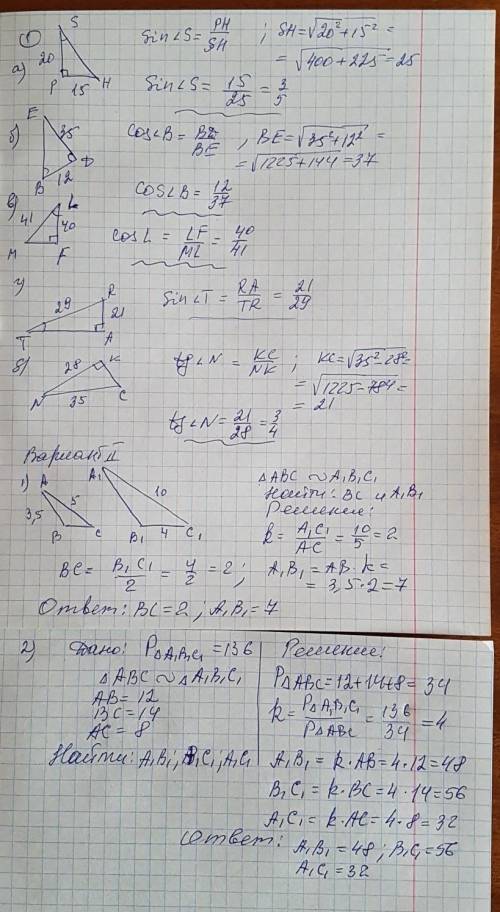 ①
а) S 20 P 15 H
Sin∠S = PH/SH ; SH = √20²+15² =
= √400+225 = 25
Sin∠S = 15/25 = 3/5
б) E 35 D B 12
cos∠B = BD/BE , BE = √35²+12² =
= √1225+144 = 37
cos∠B = 12/37
в) 41 L 40 M F
cos L = LF/ML = 40/41
г) R 29 21 T A
Sin∠T = RA/TR = 21/29
д) 28 K N 35 C
tg∠N = KC/NK ; KC = √35²-28² =
= √1225-784 =
= 21
tg∠N = 21/28 = 3/4
Вариант II
1) A 3,5 5 B C A₁ 10 B₁ 4 C₁
△ABC ∼ A₁B₁C₁
Найти: BC и A₁B₁
Решение:
k = A₁C₁/AC = 10/5 = 2
BC = B₁C₁/2 = 4/2 = 2 ; A₁B₁ = AB·k =
= 3,5·2 = 7
Ответ: BC = 2 ; A₁B₁ = 7
2) Дано: P△A₁B₁C₁ = 136
△ABC ∼ △A₁B₁C₁
AB = 12
BC = 14
AC = 8
Найти: A₁B₁, B₁C₁, A₁C₁
Решение:
P△ABC = 12+14+8 = 34
k = P△A₁B₁C₁/P△ABC = 136/34 = 4
A₁B₁ = k·AB = 4·12 = 48
B₁C₁ = k·BC = 4·14 = 56
A₁C₁ = k·AC = 4·8 = 32
Ответ: A₁B₁ = 48 ; B₁C₁ = 56
A₁C₁ = 32